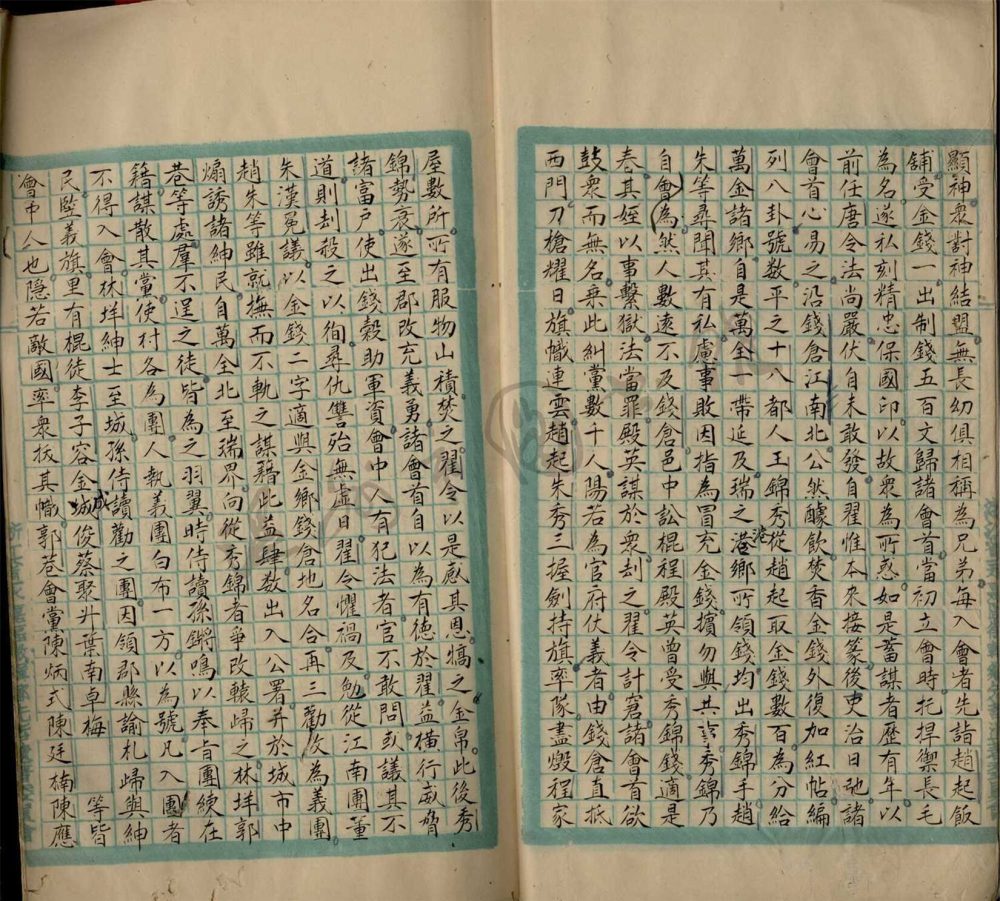 顯神衆對神結盟無長幼俱相稱為兄弟每入會者先詣趙起飯
舖受金錢一出制錢五百文歸諸會首當初立會時托捍禦長毛
為名遂私刻精忠保國印以故衆為所惑如是蓄謀者歷有年以
前任唐令法尚嚴伏自未敢發自翟惟本來接篆後吏治日弛諸
會首心易之沿錢倉江南北公然醵飲焚香金錢外復加紅帖編
列八卦號数平之十八都人王錦秀從趙起取金錢數百為分給
萬金諸鄉自是萬全一帶延及瑞之港鄉所領錢均出秀錦手趙
港
朱等尋聞其有私慮事敗因指為冒充金錢擯勿與共事秀錦乃
自會為然人數遠不及錢倉邑中訟棍程殿英曾受秀錦錢適是
春其姪以事繫獄法當罪殿英謀於衆刦之翟令計窘諸會有欲
鼓衆而無名乗此糾黨數千人陽若為官府伏義者由錢倉直抵
西門刀槍耀日旗幟連雲趙起朱秀三握劍持旗率隊盡燬程家
屋數所所有服物山積焚之翟令以是感其恩犒之金帛此後秀
錦勢衰遂至郡改充義勇諸會首自以為有德於翟益橫行威脅
諸富户使出錢穀助軍資會中人有犯法者官不敢問或議其不
道則刦殺之以徇尋仇讐殆無虚日翟令懼禍及勉從江南團董
朱漢冕議以金錢二字適與金鄉錢倉地名合再三勸改為義團
趙朱等雖就撫而不軌之謀藉此益肆数出入公署并於城市中
煽誘諸紳民自萬全北至瑞界向從秀錦者爭改轅歸之林垟郭
巷等處羣不逞之徒皆為之羽翼時侍讀孫鏘鳴以奉旨團練在
籍謀散其黨使村各為團人執義團白布一方以為號凡入團者
不得入會林垟紳士至城孫侍讀勸之團因領郡縣諭札歸與紳
民監義旗里有棍徒李子容金城俊蔡聚升葉南卓梅　等皆
成
會中人也隠若敵國率衆拔其幟郭巷會黨陳炳式陳廷楠陳應